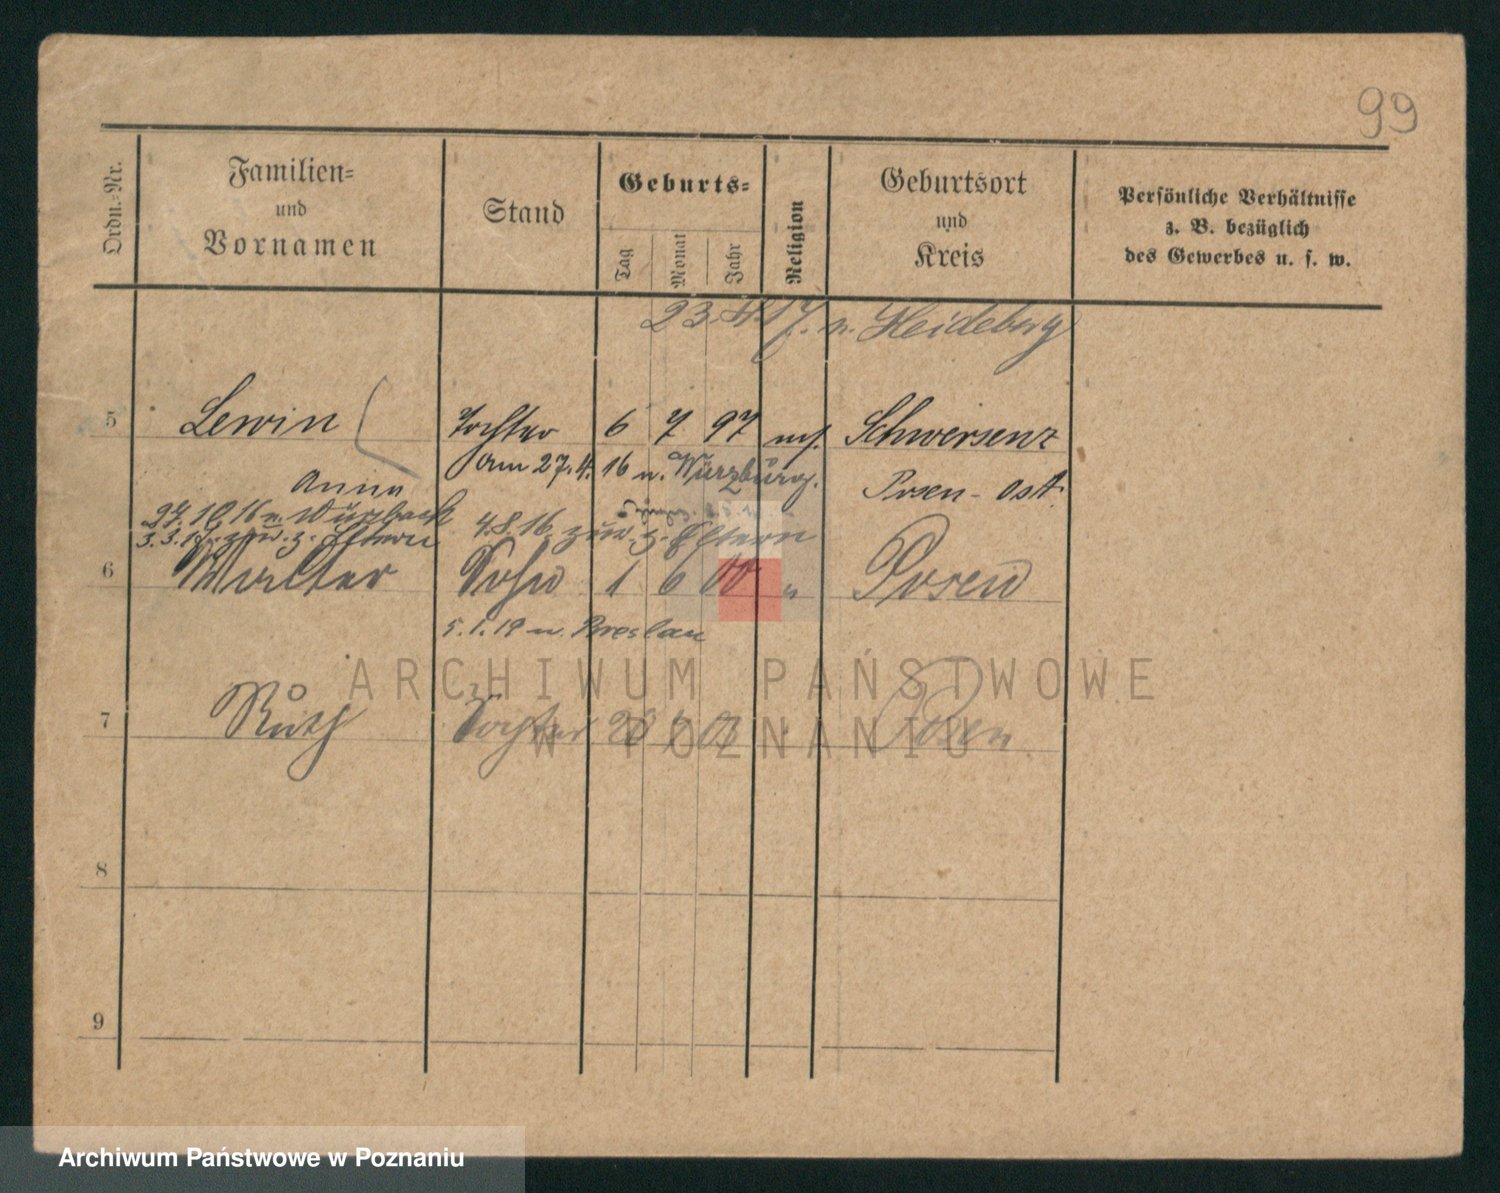 99
Ordn.-Nr.
Familien=
und
Vornamen
Stand
Geburts=
Tag
Monat
Jahr
Religion
Geburtsort
und
Kreis
Persönliche Verhältnisse
z. B. bezüglich
des Gewerbes u. s. w.
23. 17. n. Heidelberg
5 Lewin Tochter 6 7 97 mos. Schwersenz
am 27.4.16 n. Würzburg. Posen-Ost
Anna
27.10.16 n.
3.3.17. zur. z. Eltern 4.8.16 zur. z. Eltern
6 Walter Sohn 1 6 00 " Posen
5.1.19 n. Breslau
7 Ruth Tochter 20 Posen
8
9
ARCHIWUM PAŃSTWOWE
W POZNANIU
Archiwum Państwowe w Poznaniu